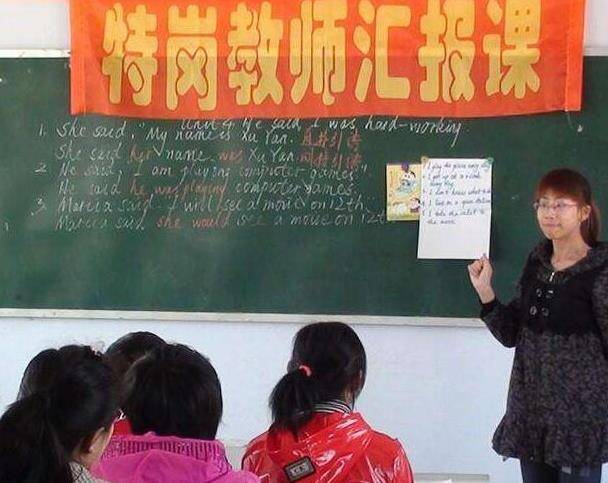 特岗教师汇报课
Unit 4 He said I was hard-working
1. She said, "My name is Xu Yan. 直接引语
She said her name was Xu Yan. 间接引语
2. He said, I am playing computer games".
He said he was playing computer games.
3. Marcia said - I will see a movie on 12th.
Marcia said she would see a movie on 12t
I play the piano every day
I get up at o'clock
every day
I don't know what to do
I live in a
5 I take the to
the